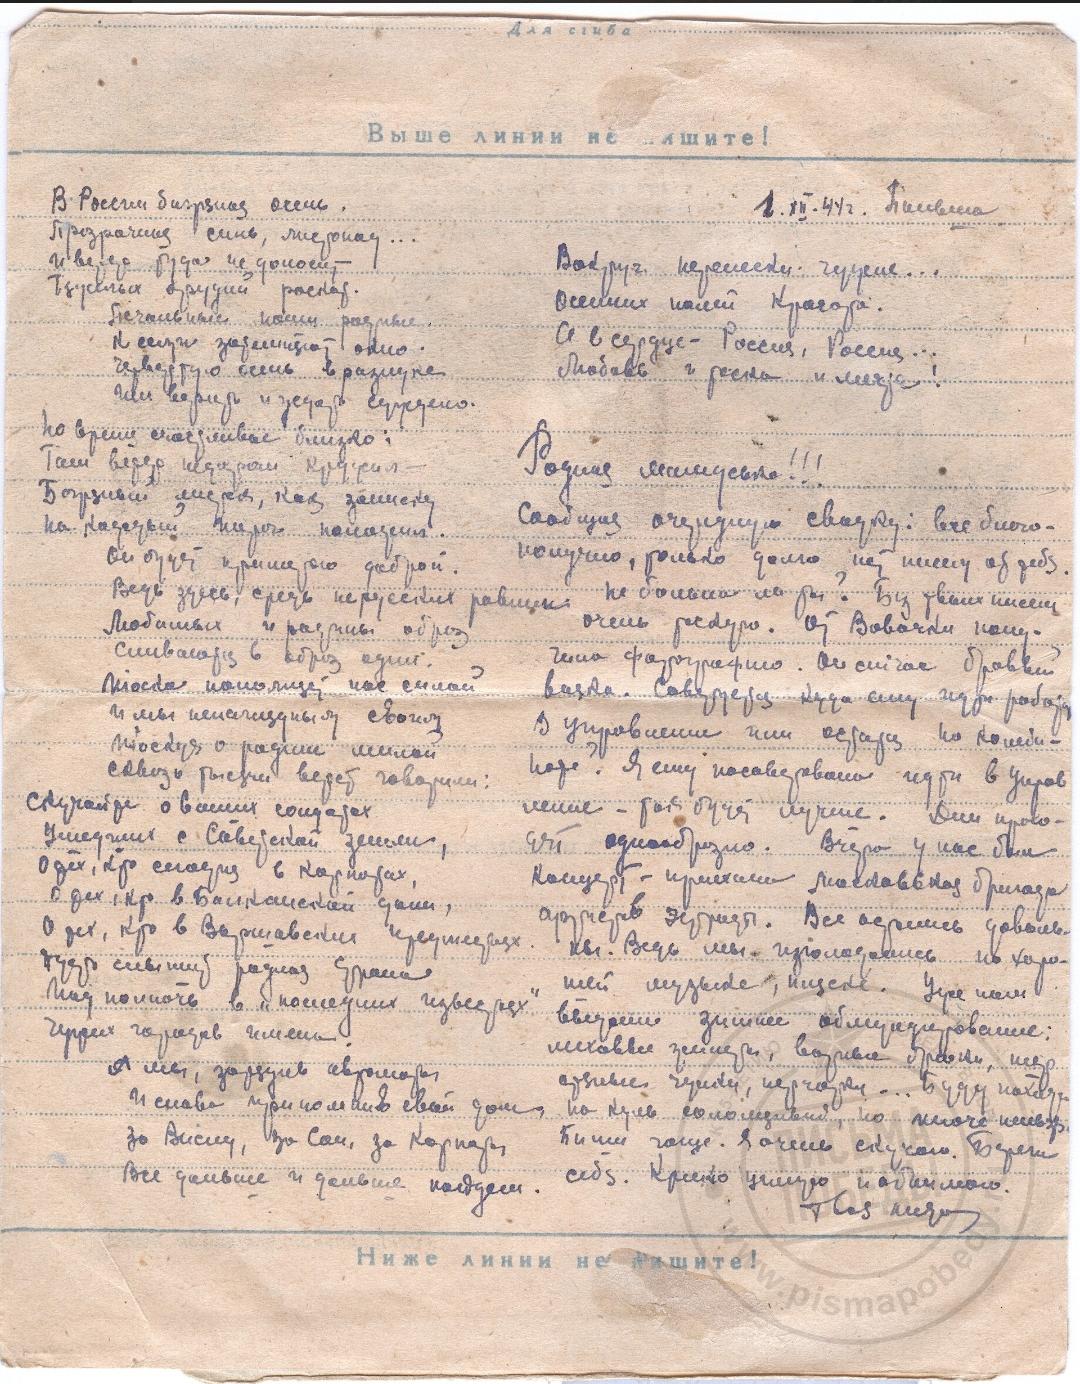 Для сгиба
Выше линии не пишите!
В России багряная осень.
Прозрачная синь, листопад...
И ветер сюда не доносит
Тяжелых орудий раскат.
Печальный наши родные
К сентябрю окно.
Четвертую осень в разлуке
Им верить и ждать суждено.
Но время счастливое близко:
Там ветер недаром кружил—
Багряный листок, как записку
На каждый порог положил.
Он будет приметою доброй.
Ведь здесь, средь нерусских равнин
Любимых и родины образ
Сливаются в образ один.
Тоска наполняет нас силой
И мы ненаглядным своим
Тоскуя о родине милой
Сквозь тысячи верст говорим:
Скучайте о ваших солдатах
Ушедших с Советской земли,
О тех, кто сегодня в Карпатах,
О тех, кто в Балканской дали,
О тех, кто в Варшавских предместьях.
Пусть слышит родная страна
Над полночь в "последних известьях"
Чужих городов имена.
А мы, зарядив автоматы
И снова припомнив свой дом,
За Вислу, за Сан, за Карпаты
Все дальше и дальше пойдем.
1.XII.44г. Польша
Вокруг перелески чужие...
Осенних полей красота.
А в сердце— Россия, Россия...
Любовь и тоска и мечта!
Родная мамуська!!!
Сообщаю очередную сводку: все благо-
получно, только долго нет писем от тебя.
Не больна ли ты? Без твоих писем
очень тоскую. От Вовочки полу-
чила фотографию. Он сейчас бравый
вояка. Советуется куда ему идти работать
В управление или остаться на
Я ему посоветовала идти в управ
ление - там будет лучше. Дни прохо-
дят однообразно. Вчера у нас был
концерт - приехала Московская бригада
артистов эстрады. Все остались доволь-
ны. Ведь мы изголодались по хоро-
шей музыке, пляске. Уже нам
выдали зимнее обмундирование:
меховые жилеты, ватные брюки, шер
стяные чулки, перчатки... Буду похожа
на куль соломенный, но иначе нельзя.
Пиши чаще. Я очень скучаю. Береги
себя. Крепко целую и обнимаю.
Твоя
Ниже линии не пишите!
ПИСЬМА
ПОБЕДЫ
www.pismapobedy.